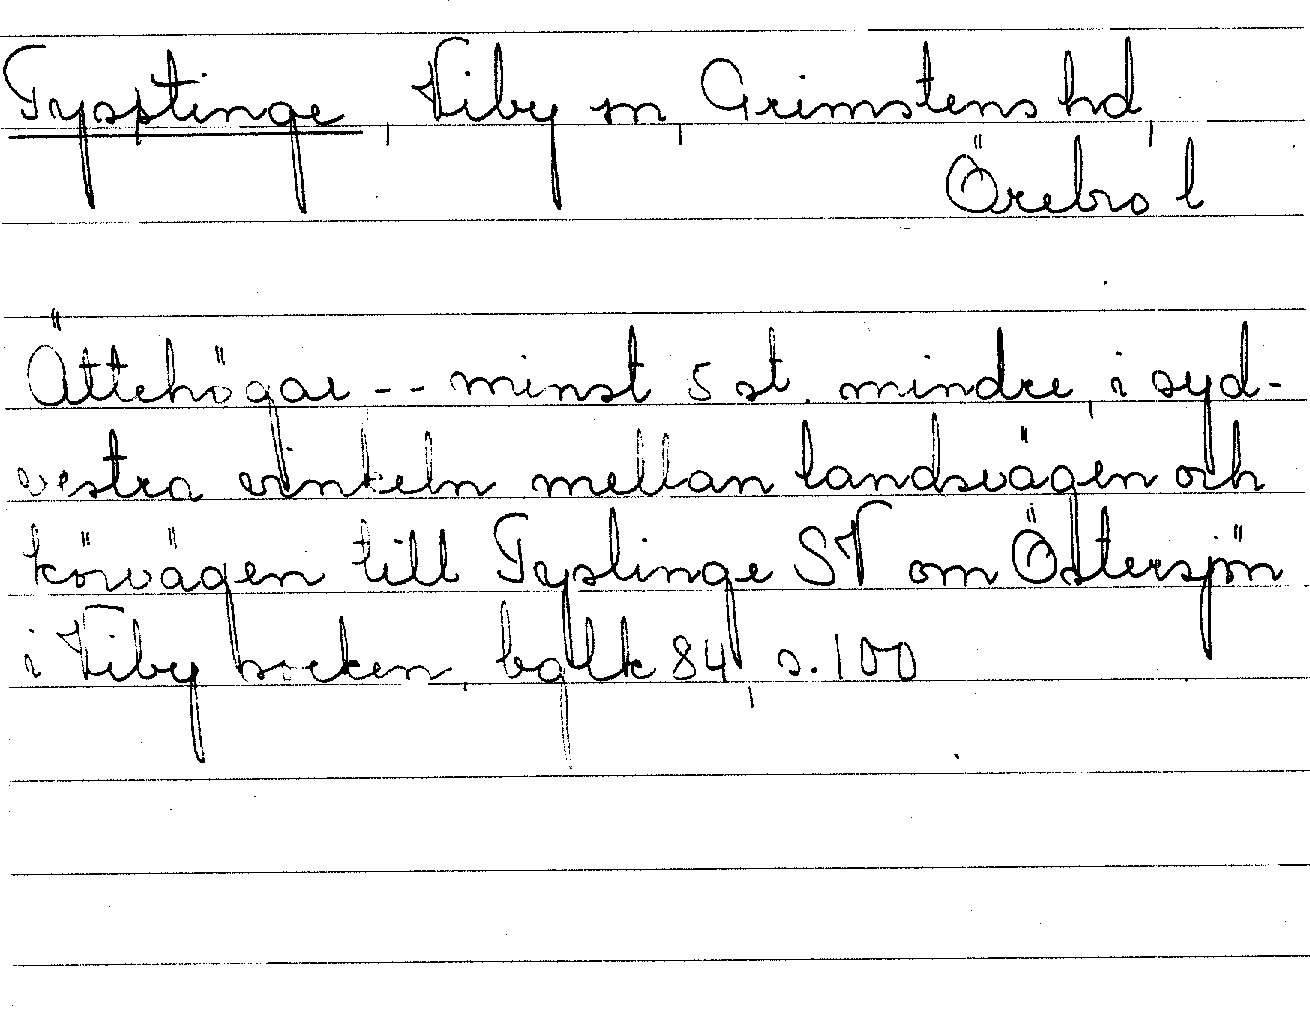 Tysptinge, Viby sn, Grimstens hd,
Örebro l
Ättehögar -- minst 5 st. mindre, i syd-
vestra vinkeln mellan landsvägen och
körvägen till Tyslinge SV om Östersjön
i Viby socken,
84, s. 100